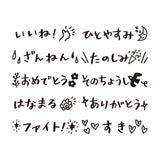 いいね!
ひとやすみ
ざんねん
たのしみ
おめでとう
そのちょうし
はなまる
ありがとう
ファイト!
すき